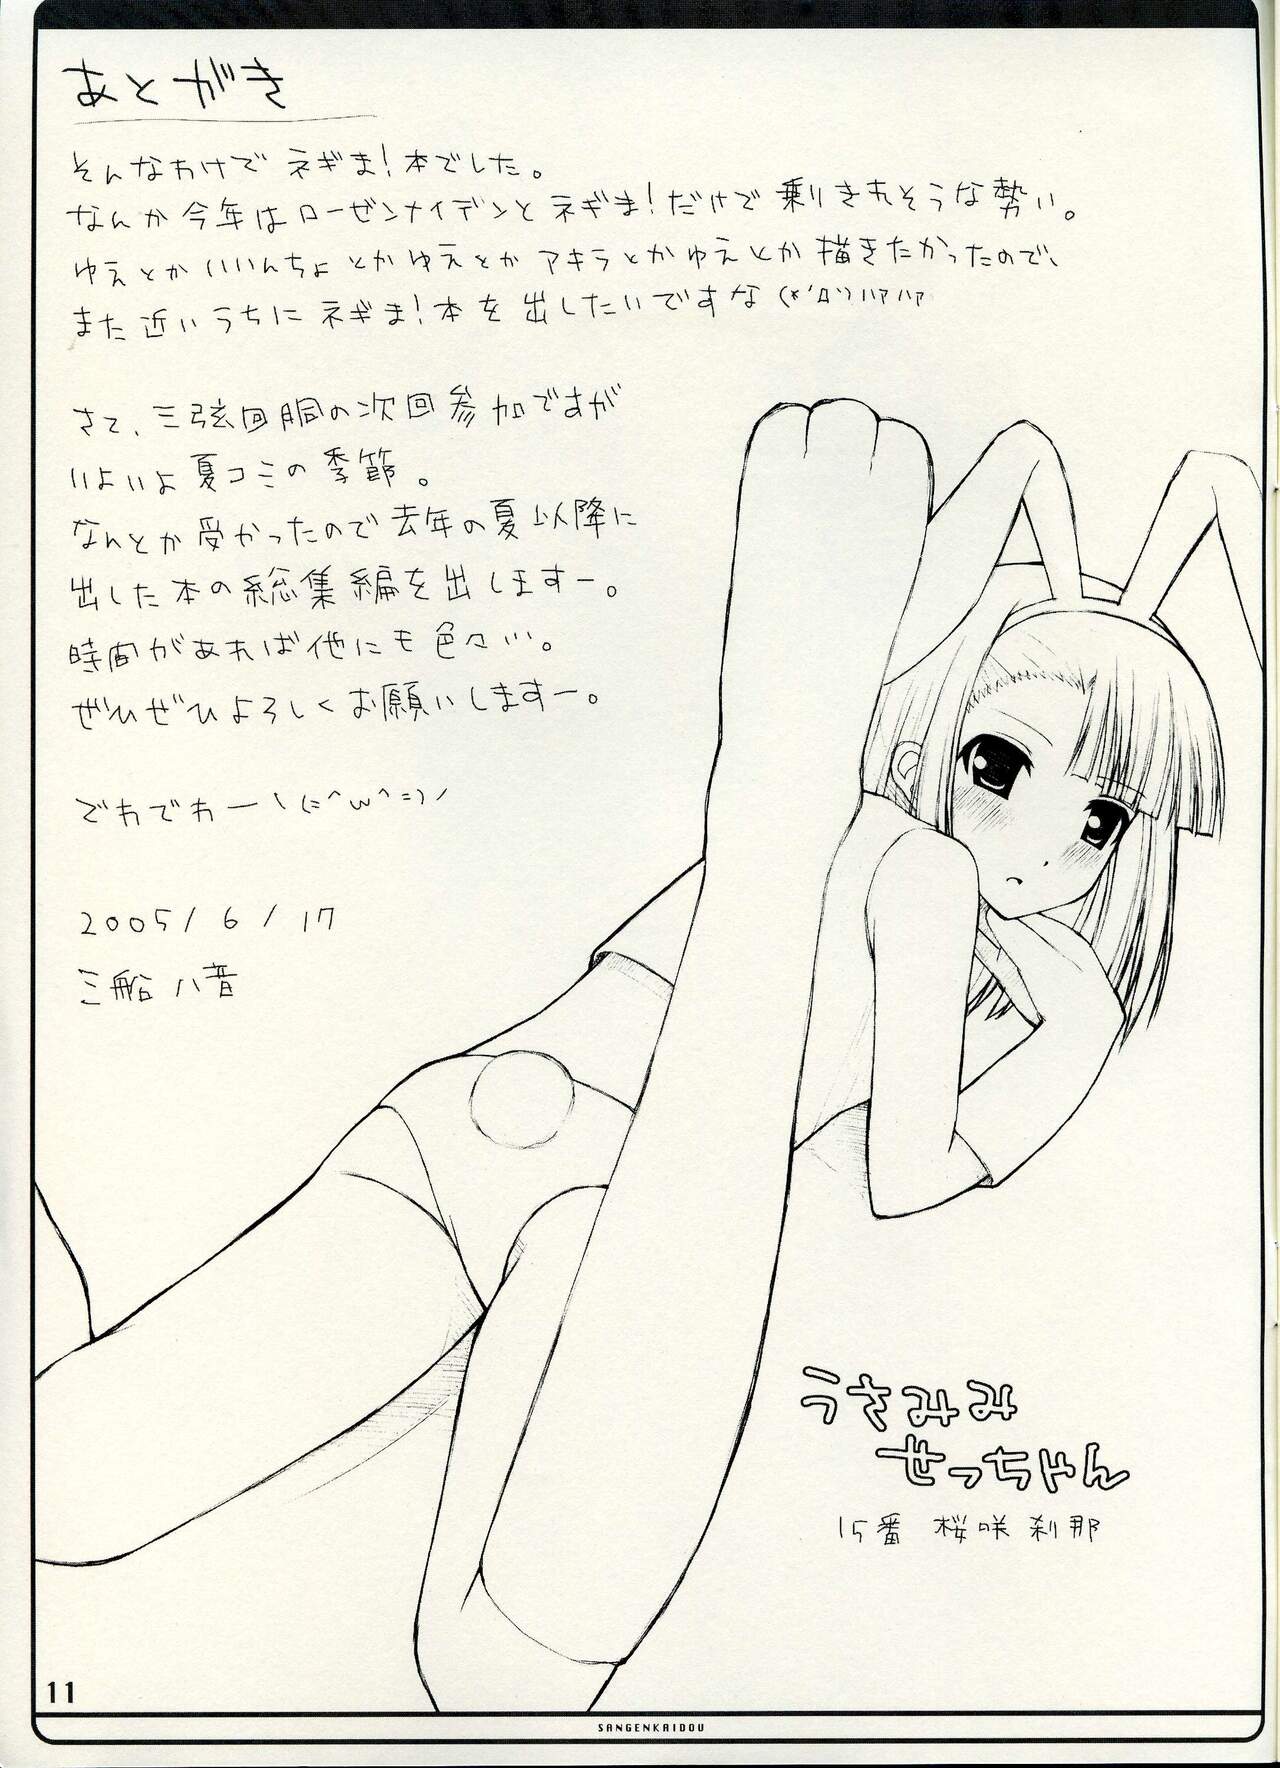 あとがき
そんなわけでネギま！本でした。
なんか今年はローゼンメイデンとネギま！だけで乗りきれそうな勢い。
ゆえとかいいんちょとかゆえとかアキラとかゆえとか描きたかったので、
また近いうちにネギま！本を出したいですな(*´Д`)ﾊｱﾊｱ
さて、三弦回胴の次回参加ですが
いよいよ夏コミの季節。
なんとか受かったので去年の夏以降に
出した本の総集編を出しますー。
時間があれば他にも色々…。
ぜひぜひよろしくお願いしますー。
でわでわーヽ(=^ω^=)ノ
2005/6/17
三船八音
うさみみ
せっちゃん
15番 桜咲刹那
11
SANGENKAIDOU